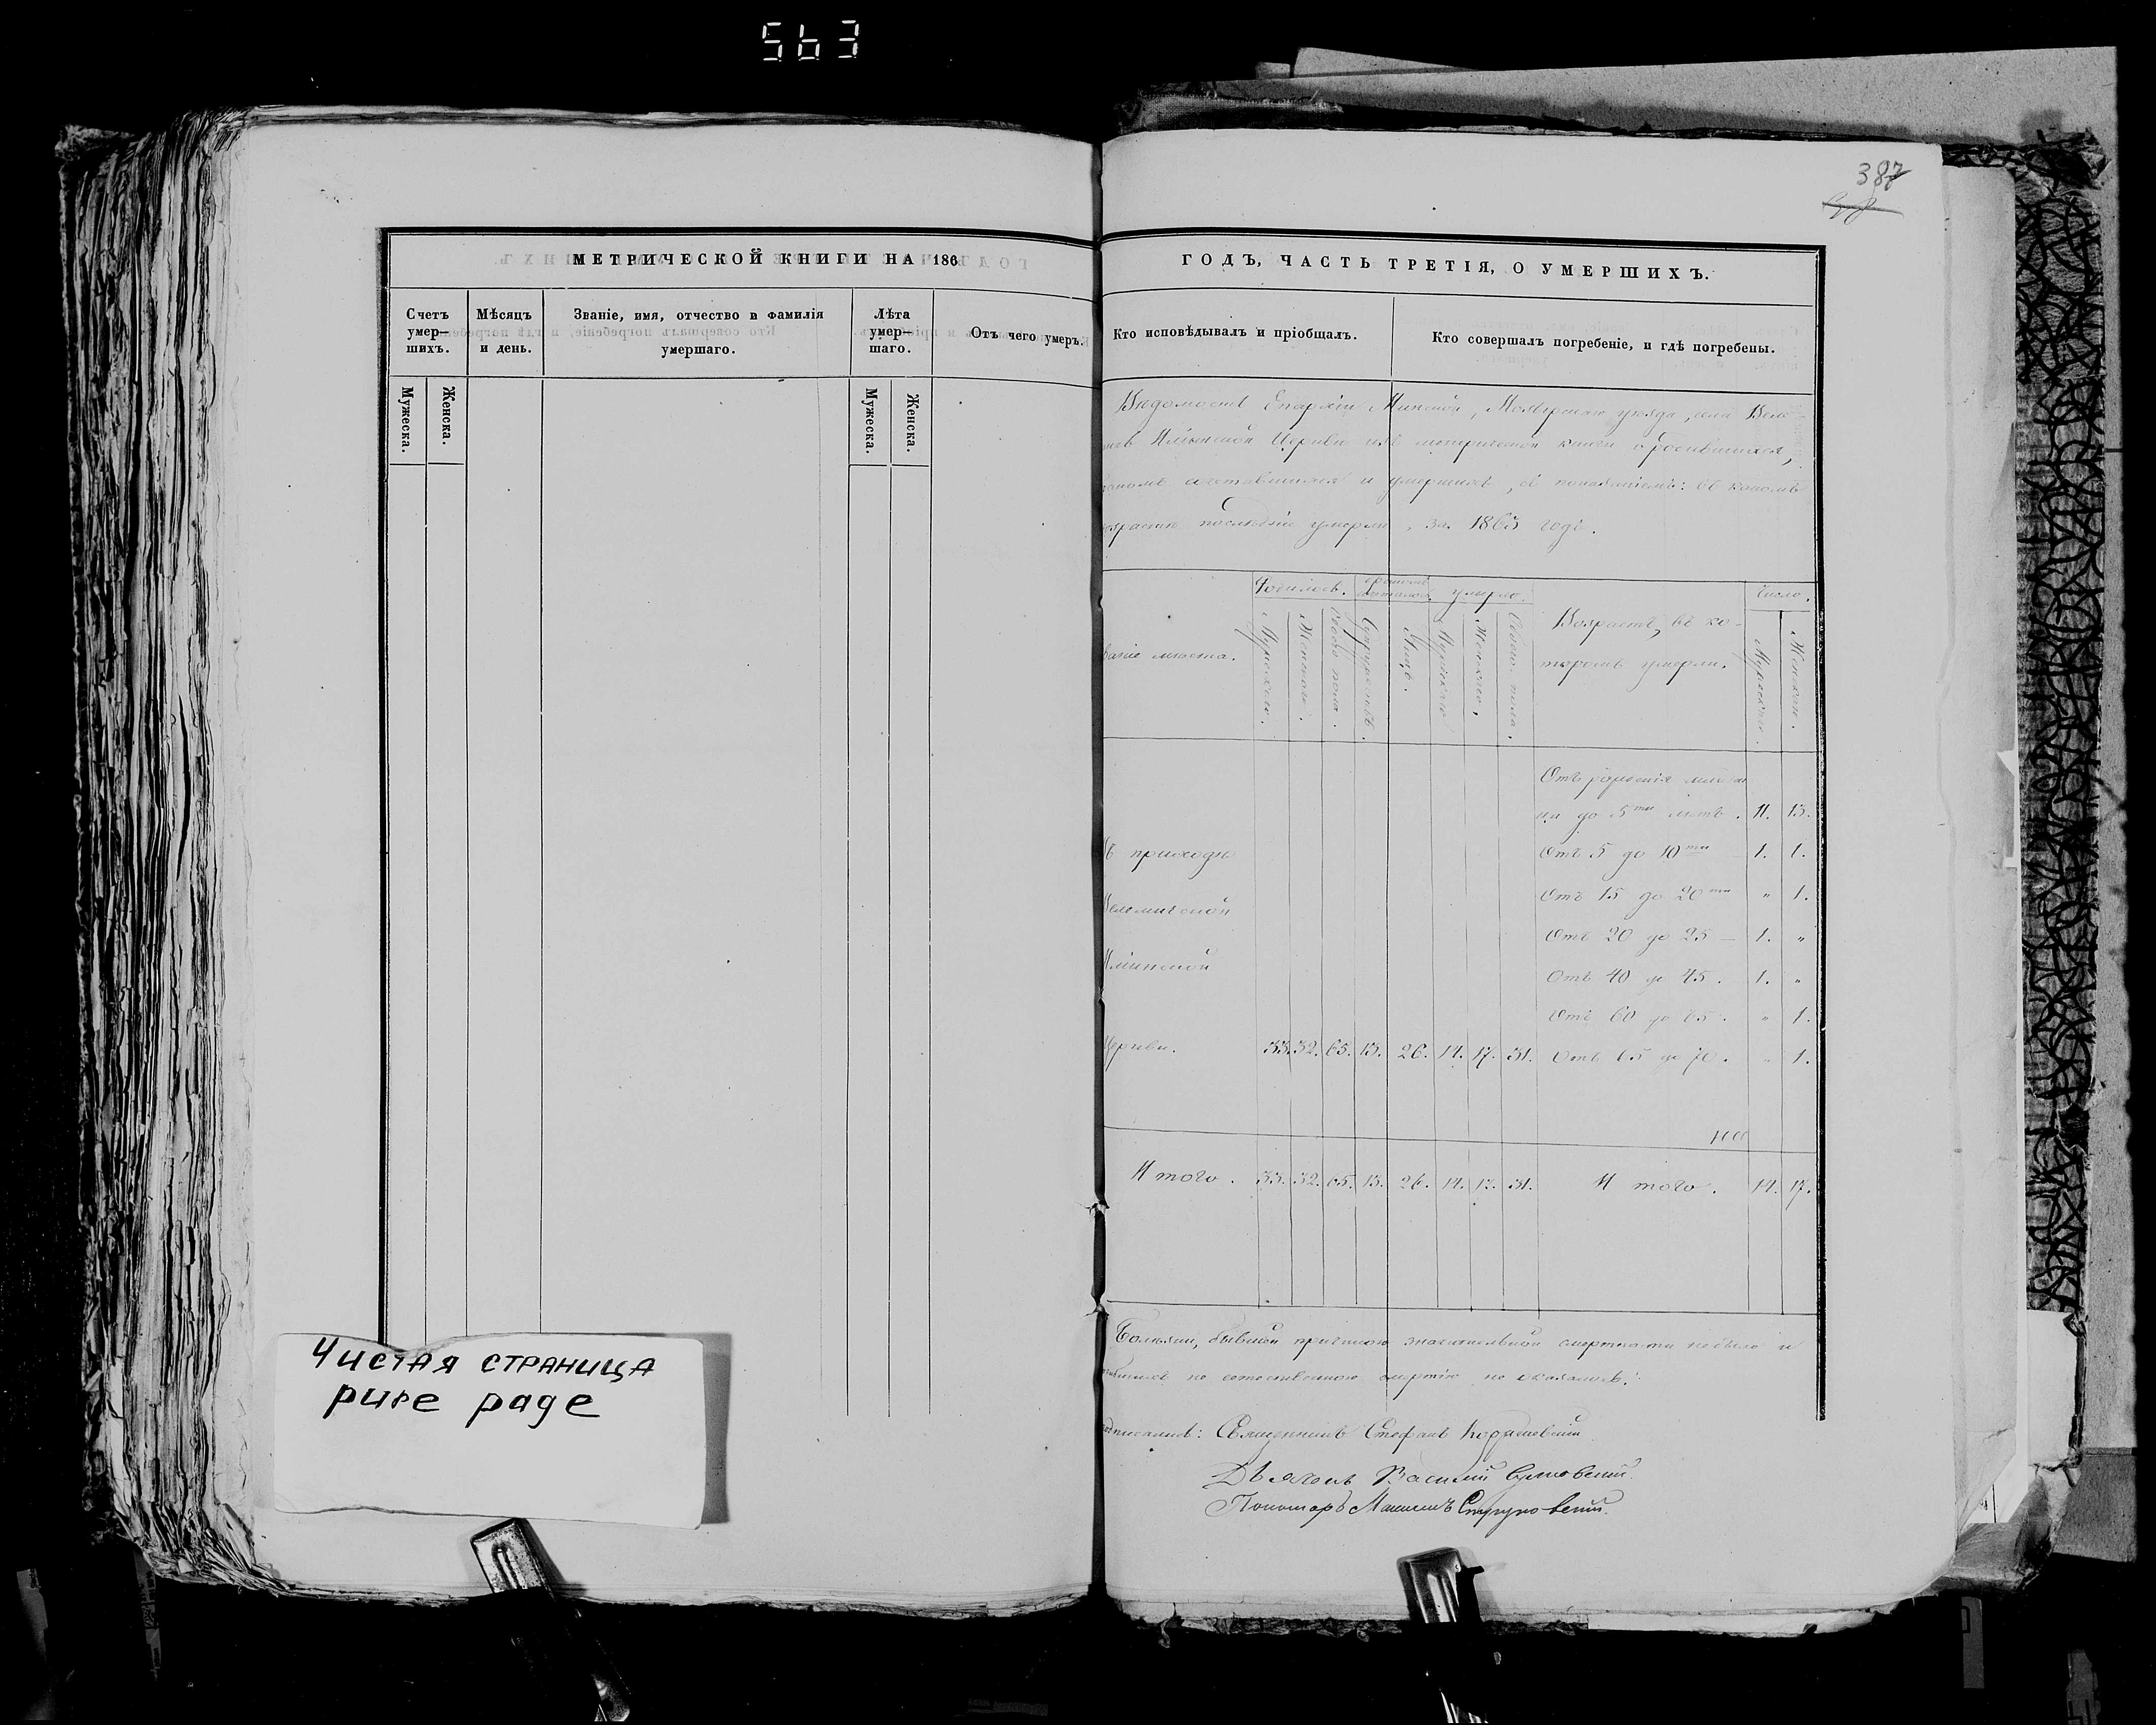 563
387
МЕТРИЧЕСКОЙ КНИГИ НА 186
ГОДЪ, ЧАСТЬ ТРЕТІЯ, О УМЕРШИХЪ.
Счетъ умер—шихъ.
Мѣсяцъ и день.
Званіе, имя, отчество и фамилія умершаго.
Лѣта умер—шаго.
Отъ чего умеръ.
Кто исповѣдывалъ и пріобщалъ.
Кто совершалъ погребеніе, и гдѣ погребены.
Мужеска.
Женска.
Мужеска.
Женска.
Вѣдомость Епархіи Минской, Мозырскаго уѣзда, села Веле
Церкви изъ метрической книги о родившихся,
и умершихъ, съ показаніемъ: въ какомъ
послѣдніе умерли, за 1863 годъ.
Родилось.
умерло.
Число.
Мужескаго.
Женскаго.
Обоего пола.
Супружествъ.
Лицъ.
Мужескаго
Женскаго,
Обоего пола.
Возрастъ, въ ко-
торомъ умерли.
Мужескаго.
Женскаго.
мѣста.
Отъ рожденія младен
ца до 5ти лѣтъ. 11. 13.
приходѣ Отъ 5 до 10ти 1. 1.
Отъ 15 до 20ти " 1.
Отъ 20 до 25 — 1. "
Отъ 40 до 45. 1. "
Отъ 60 до 65. " 1.
Церкви. 33. 32. 65. 13. 26. 14. 17. 31. Отъ 65 до 70. " 1.
Итого. 33. 32. 65. 13. 26. 14. 17. 31. Итого. 14. 17.
Болѣзни, бывшей причиною значительной смертности небыло и
не естественною смертію не оказалось.
Священникъ Стефанъ
Дьяконъ Василій
Пономарь
Чистая страница
pure page